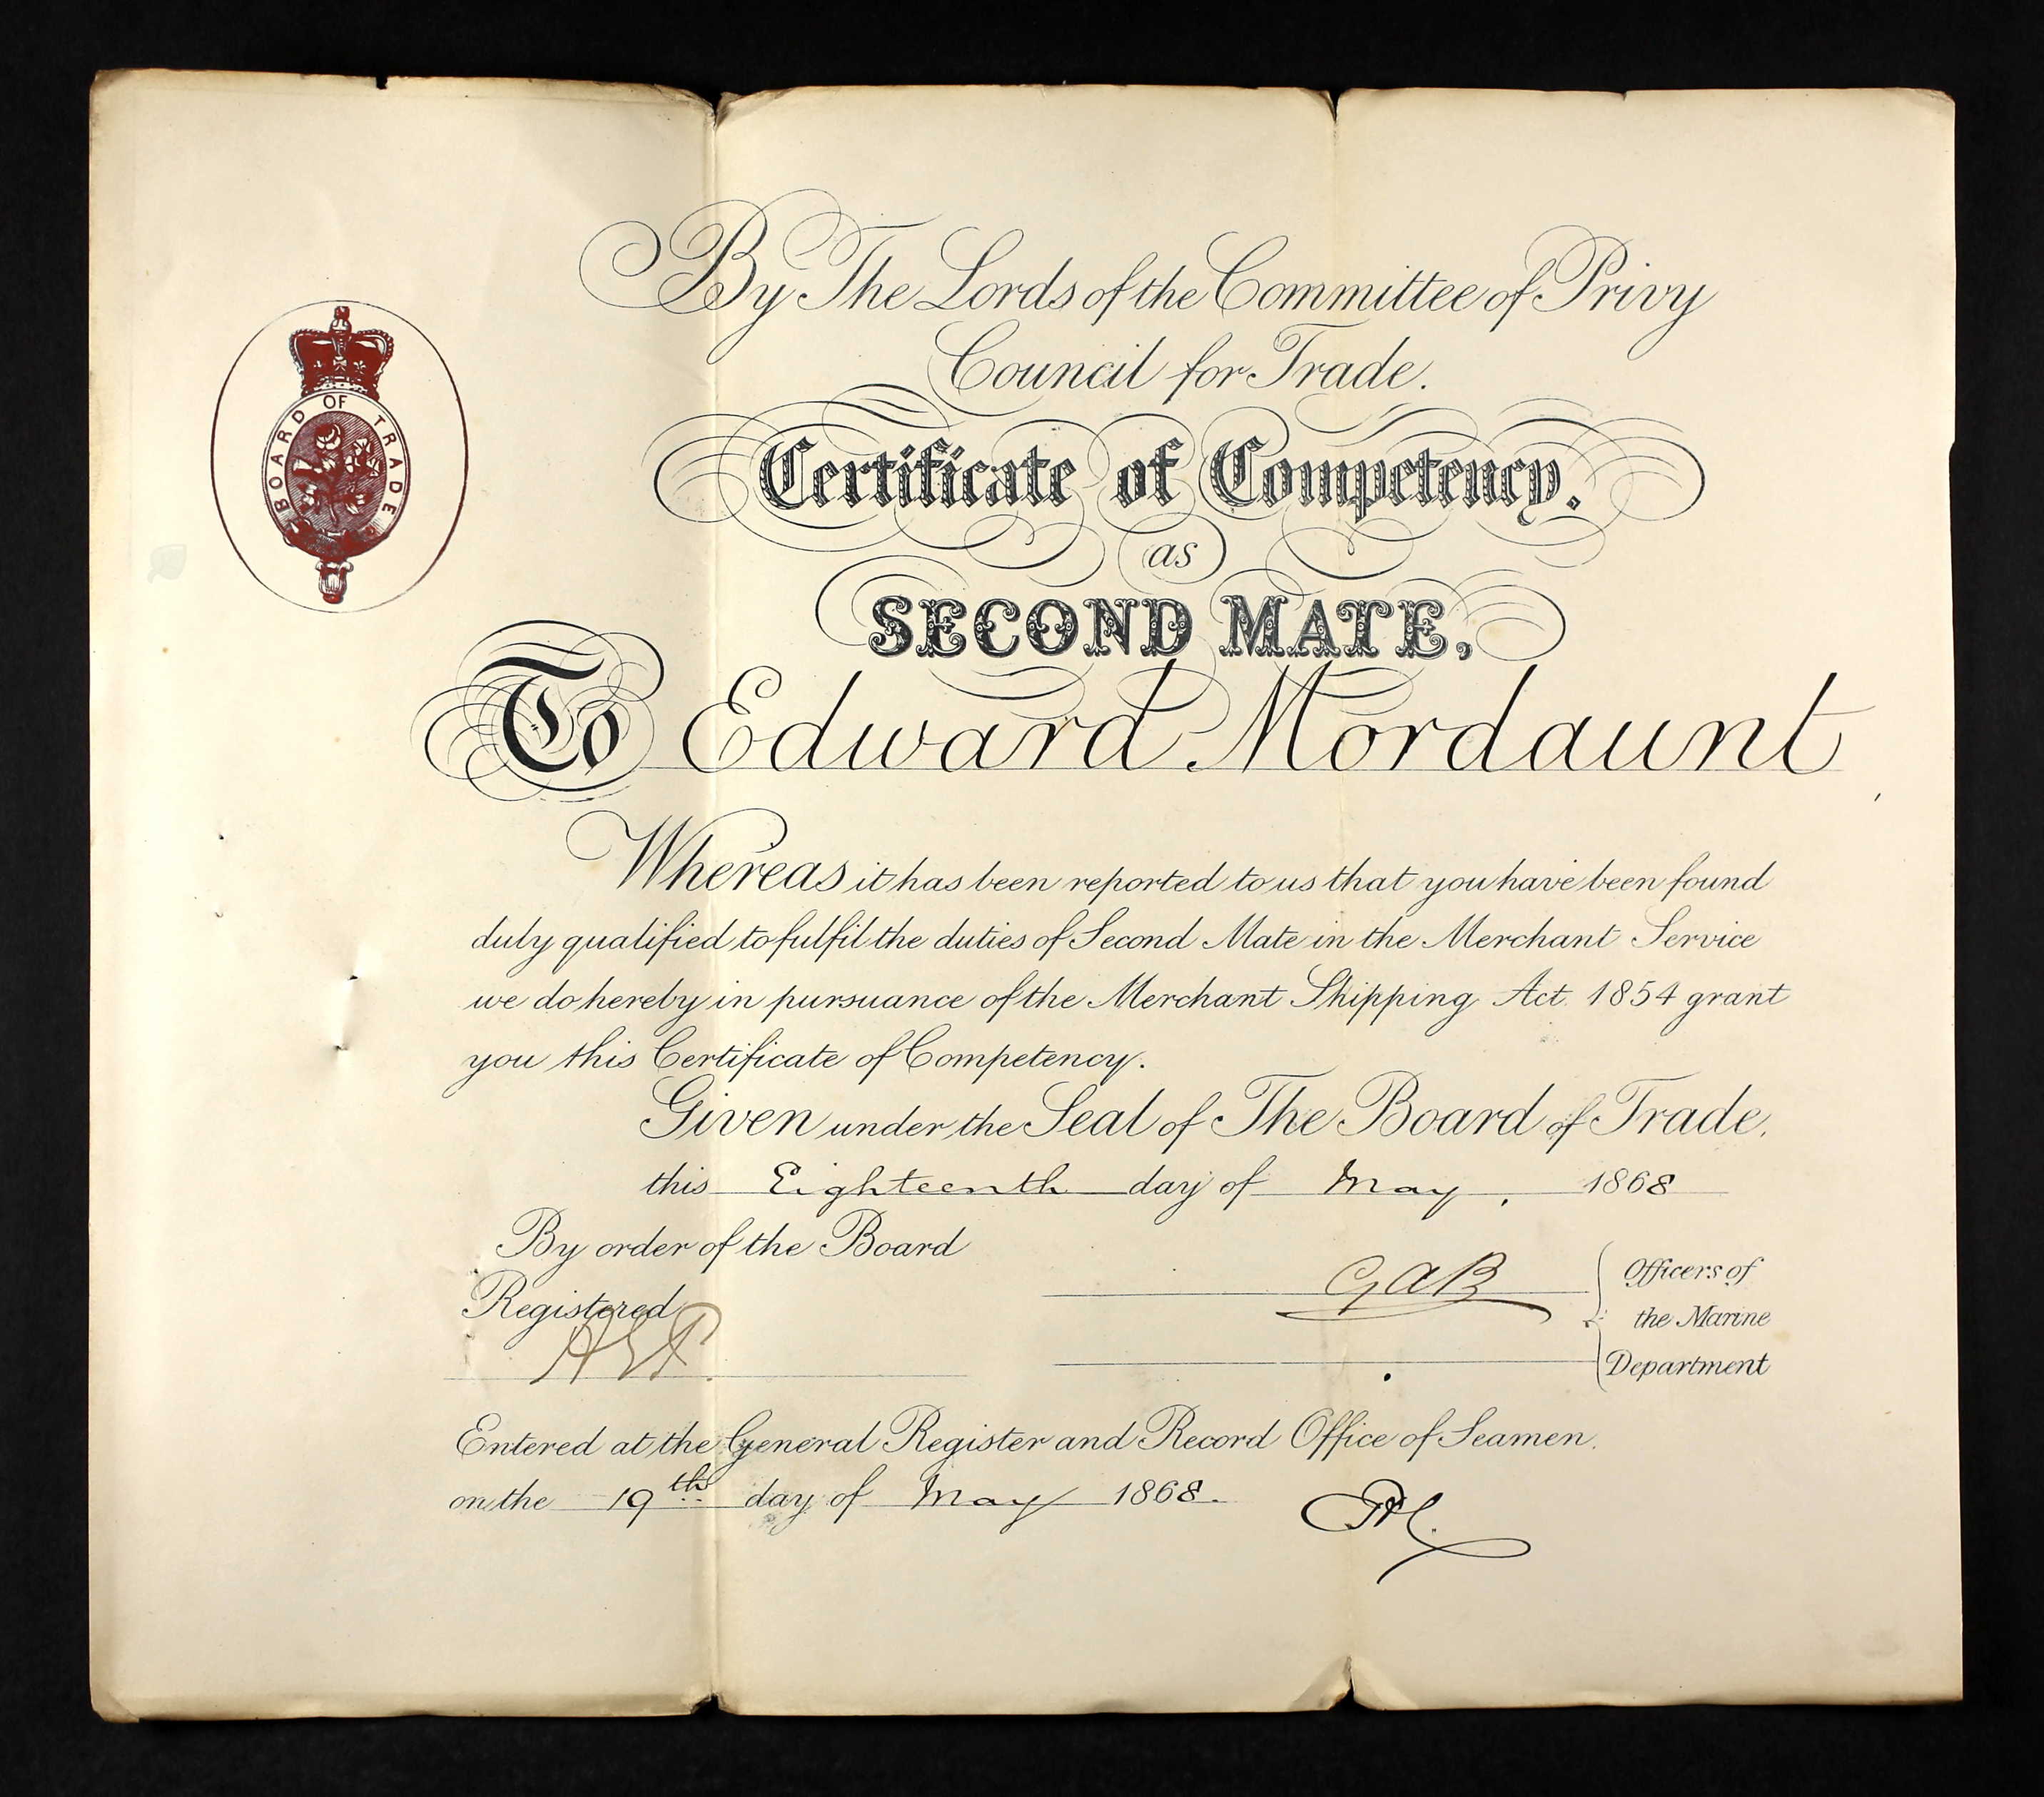 BOARD OF TRADE
By The Lords of the Committee of Privy
Council for Trade.
Certificate of Competency.
as
SECOND MATE,
To Edward Mordaunt
Whereas it has been reported to us that you have been found
duly qualified to fulfil the duties of Second Mate in the Merchant Service
we do hereby in pursuance of the Merchant Shipping Act. 1854 grant
you this Certificate of Competency.
Given under the Seal of The Board of Trade.
this Eighteenth day of May, 1868
By order of the Board
GAB
Officers of
the Marine
Department
Registered
Entered at the General Register and Record Office of Seamen.
on the 19th day of May 1868.